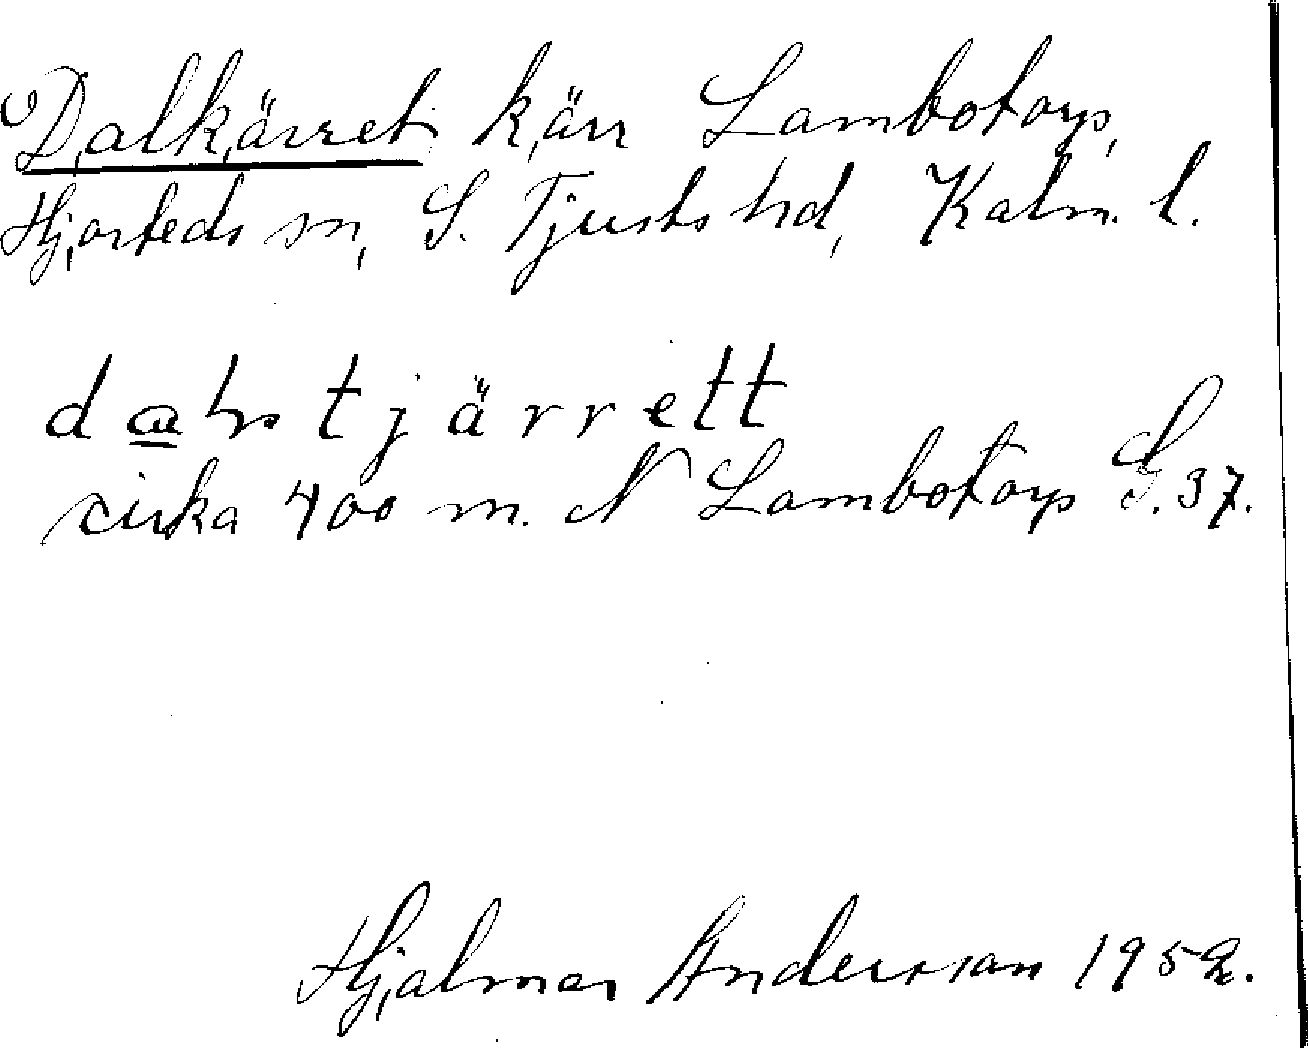 Dalkärret, kärr Lambotorp,
Hjorteds sn, S. Tjusts hd, Kalm. l.
dahstjärrett
cirka 400 m. N Lambotorp G. 37.
Hjalmar Andersson 1952.